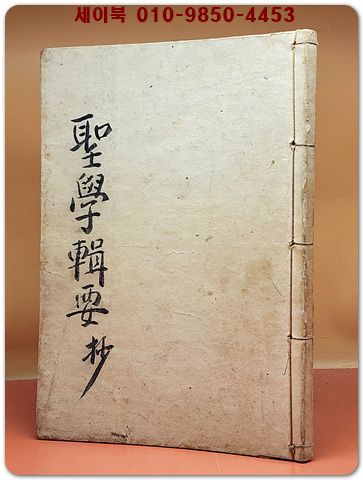 세이북 010-9850-4453
聖學輯要抄